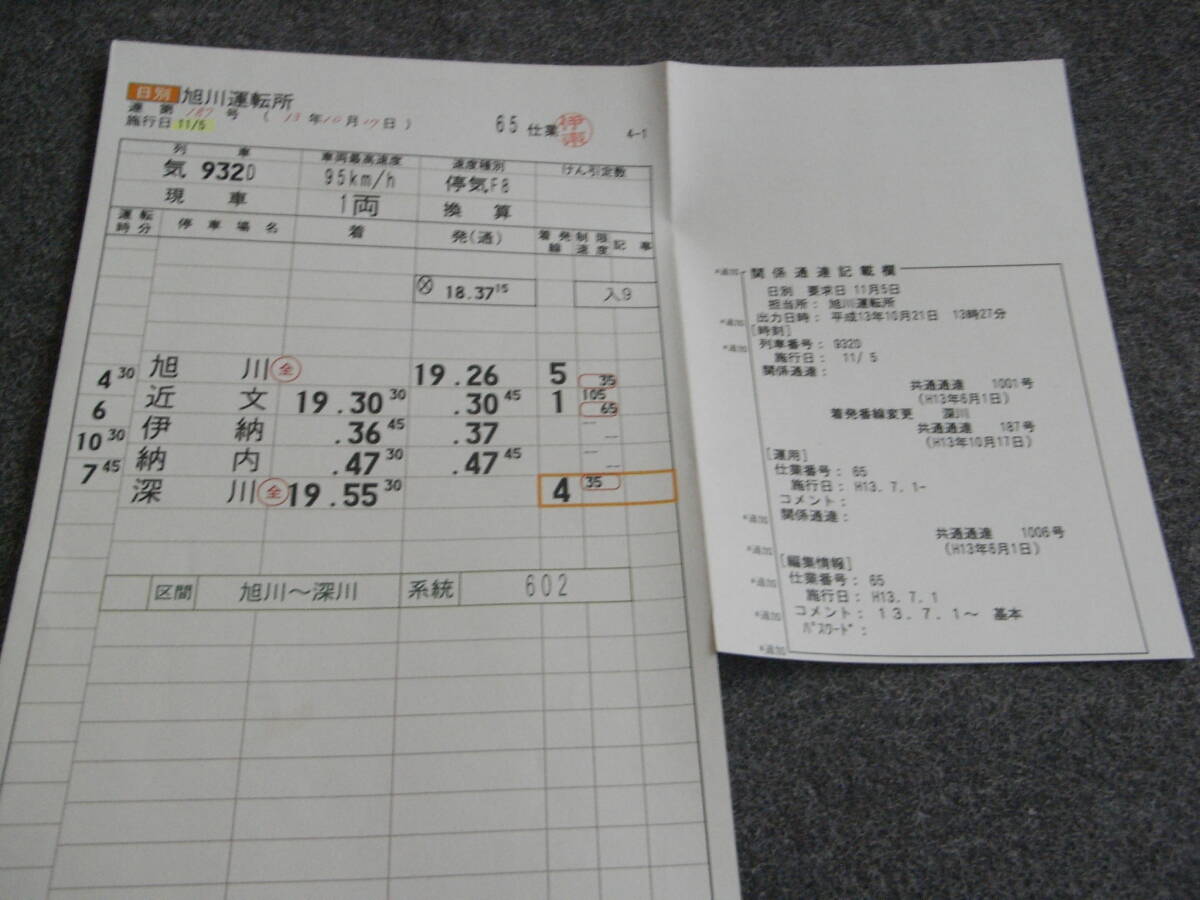 日別 旭川運転所
運第 187 号 ( 13 年 10 月 17 日 )
施行日 11/5
65 仕業
4-1
列 車 車両最高速度 速度種別 けん引定数
気 932D 95km/h 停気F8
現 車 1両 換 算
運転時分 停車場名 着 発(通) 着発線 制限速度 記 事
18.37 15 入9
旭 川 全 19.26 5 35
4 30
近 文 19.30 30 .30 45 1 105 65
6
伊 納 .36 45 .37
10 30
納 内 .47 30 .47 45
7 45
深 川 全 19.55 30 4 35
区間 旭川～深川 系統 602
*追加 関係通達記載欄
日別 要求日 11月5日
担当所: 旭川運転所
出力日時: 平成13年10月21日 13時27分
*追加 [時刻]
列車番号: 932D
*追加 施行日: 11/ 5
関係通達:
共通通達 1001号
(H13年6月1日)
着発番線変更 深川
共通通達 187号
(H13年10月17日)
[運用]
仕業番号: 65
施行日: H13. 7. 1-
コメント:
*追加 関係通達:
共通通達 1006号
*追加 (H13年6月1日)
[編集情報]
*追加 仕業番号: 65
施行日: H13. 7. 1
*追加 コメント: 13. 7. 1～ 基本
ﾊﾟｽﾜｰﾄﾞ:
*追加